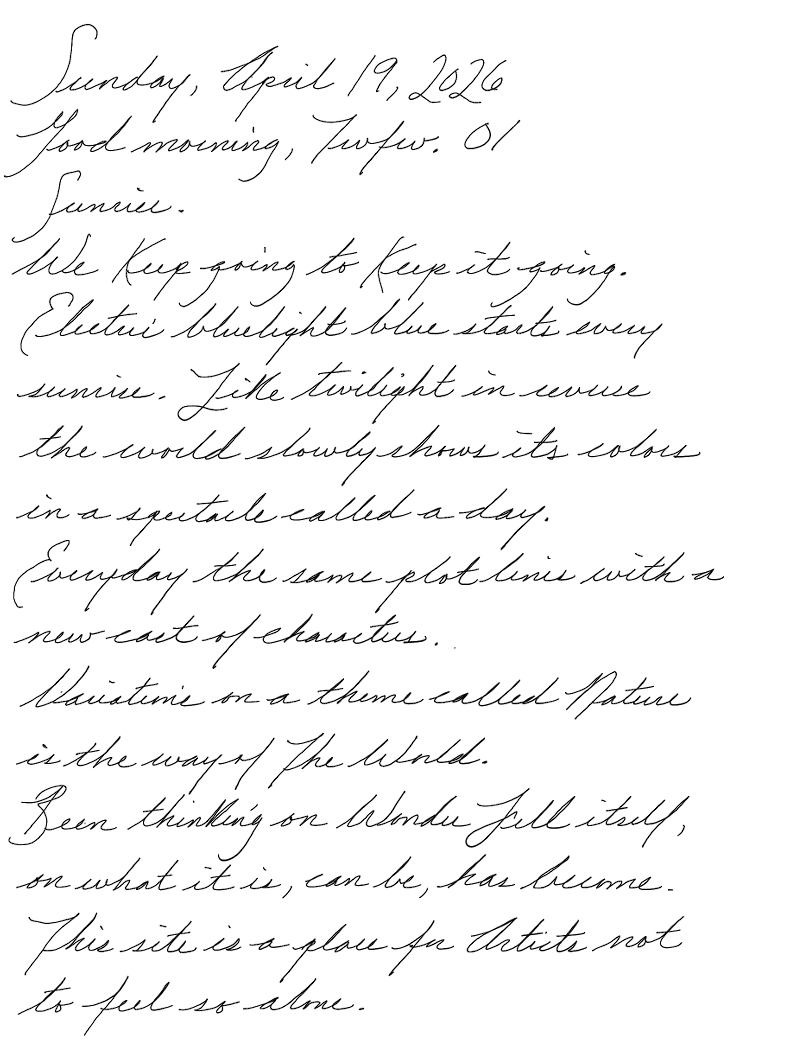 Sunday, April 19, 2026
Good morning, Twfw. 01
Sunrise.
We Keep going to Keep it going.
Electric bluelight blue starts every
sunrise. Like twilight in reverse
the world slowly shows its colors
in a spectacle called a day.
Everyday the same plot lines with a
new cast of characters.
Variations on a theme called Nature
is the way of The World.
Been thinking on Wonder Full itself,
on what it is, can be, has become.
This site is a place for Artists not
to feel so alone.